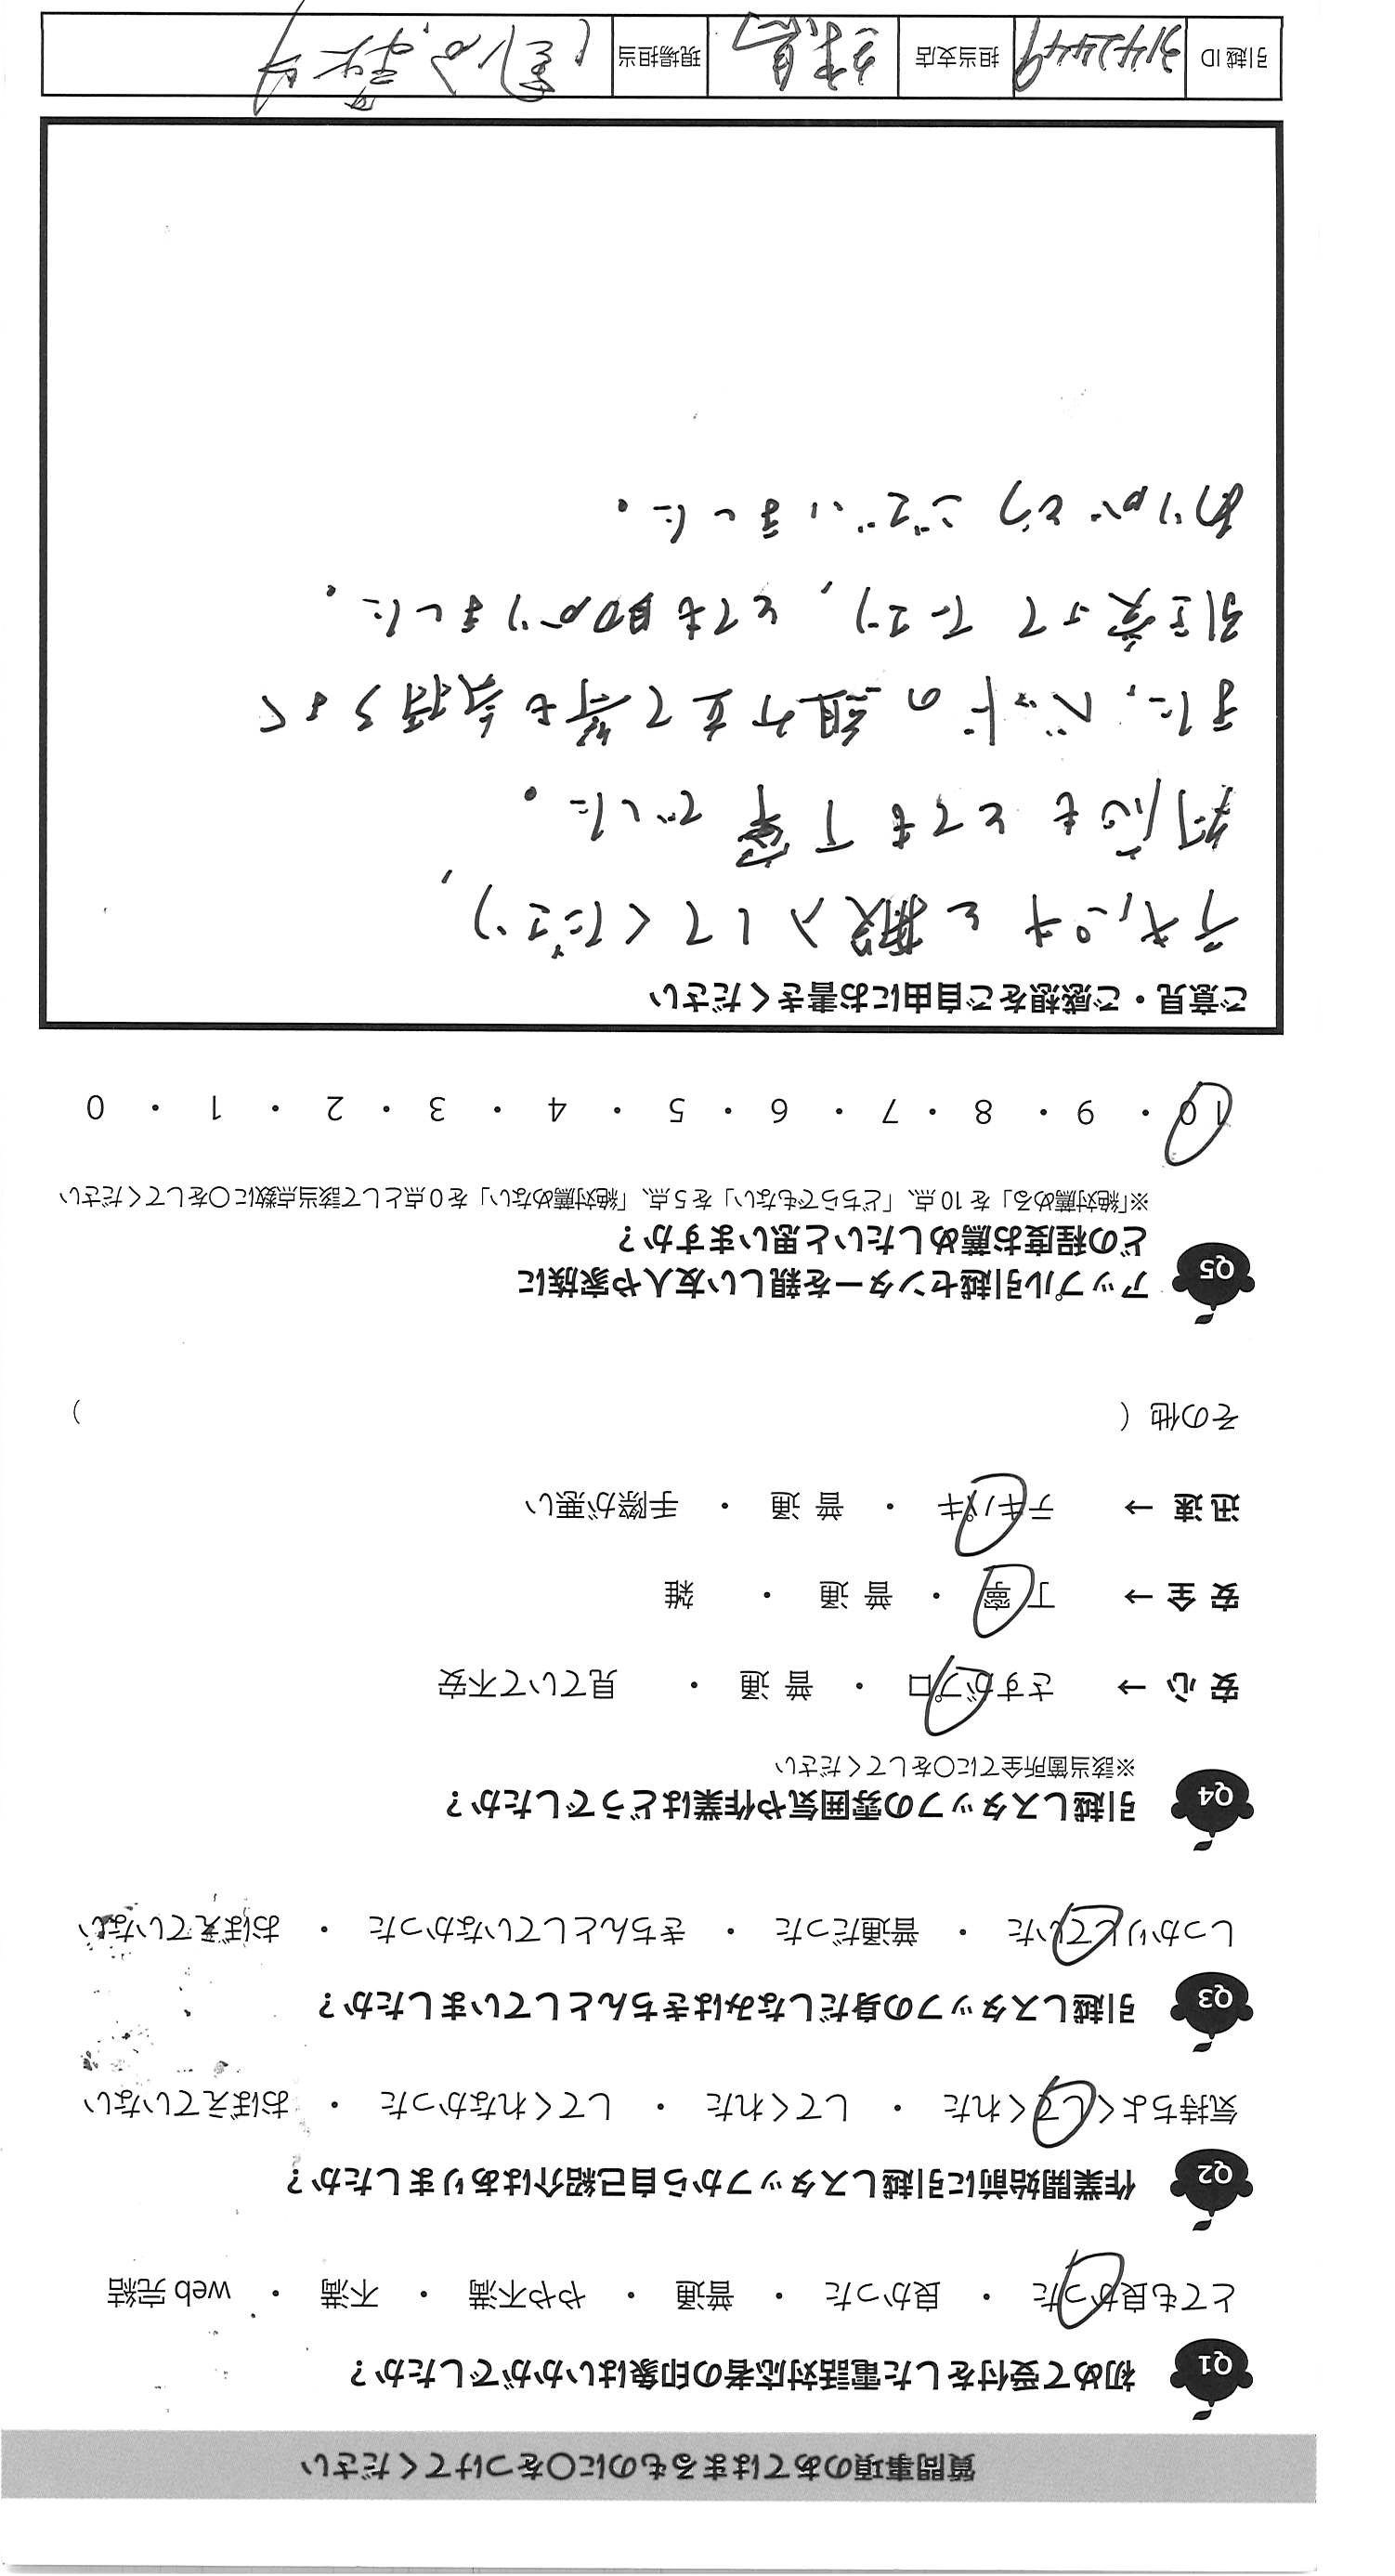 質問事項のあてはまるものに〇をつけてください
Q1 初めて受付をした電話対応者の印象はいかがでしたか？
とても良かった ・ 良かった ・ 普通 ・ やや不満 ・ 不満 ・ web 完結
Q2 作業開始前に引越しスタッフから自己紹介はありましたか？
気持ちよくしてくれた ・ してくれた ・ してくれなかった ・ おぼえていない
Q3 引越しスタッフの身だしなみはきちんとしていましたか？
しっかりしていた ・ 普通だった ・ きちんとしていなかった ・ おぼえていない
Q4 引越しスタッフの雰囲気や作業はどうでしたか？
※該当箇所全てに〇をしてください
安心 → さすがプロ ・ 普通 ・ 見ていて不安
安全 → 丁寧 ・ 普通 ・ 雑
迅速 → テキパキ ・ 普通 ・ 手際が悪い
その他（ ）
Q5 アップル引越センターを親しい友人や家族に
どの程度お薦めしたいと思いますか？
※「絶対薦める」を 10 点、「どちらでもない」を 5 点、「絶対薦めない」を 0 点として該当点数に〇をしてください
10 ・ 9 ・ 8 ・ 7 ・ 6 ・ 5 ・ 4 ・ 3 ・ 2 ・ 1 ・ 0
ご意見・ご感想をご自由にお書きください
テキパキと搬入してくださり、
対応もとても丁寧でした。
また、ベッドの組み立て等も気持ちよく
引き受って下さり、とても助かりました。
ありがとうございました。
引越 ID 3142449 担当支店 練馬 現場担当